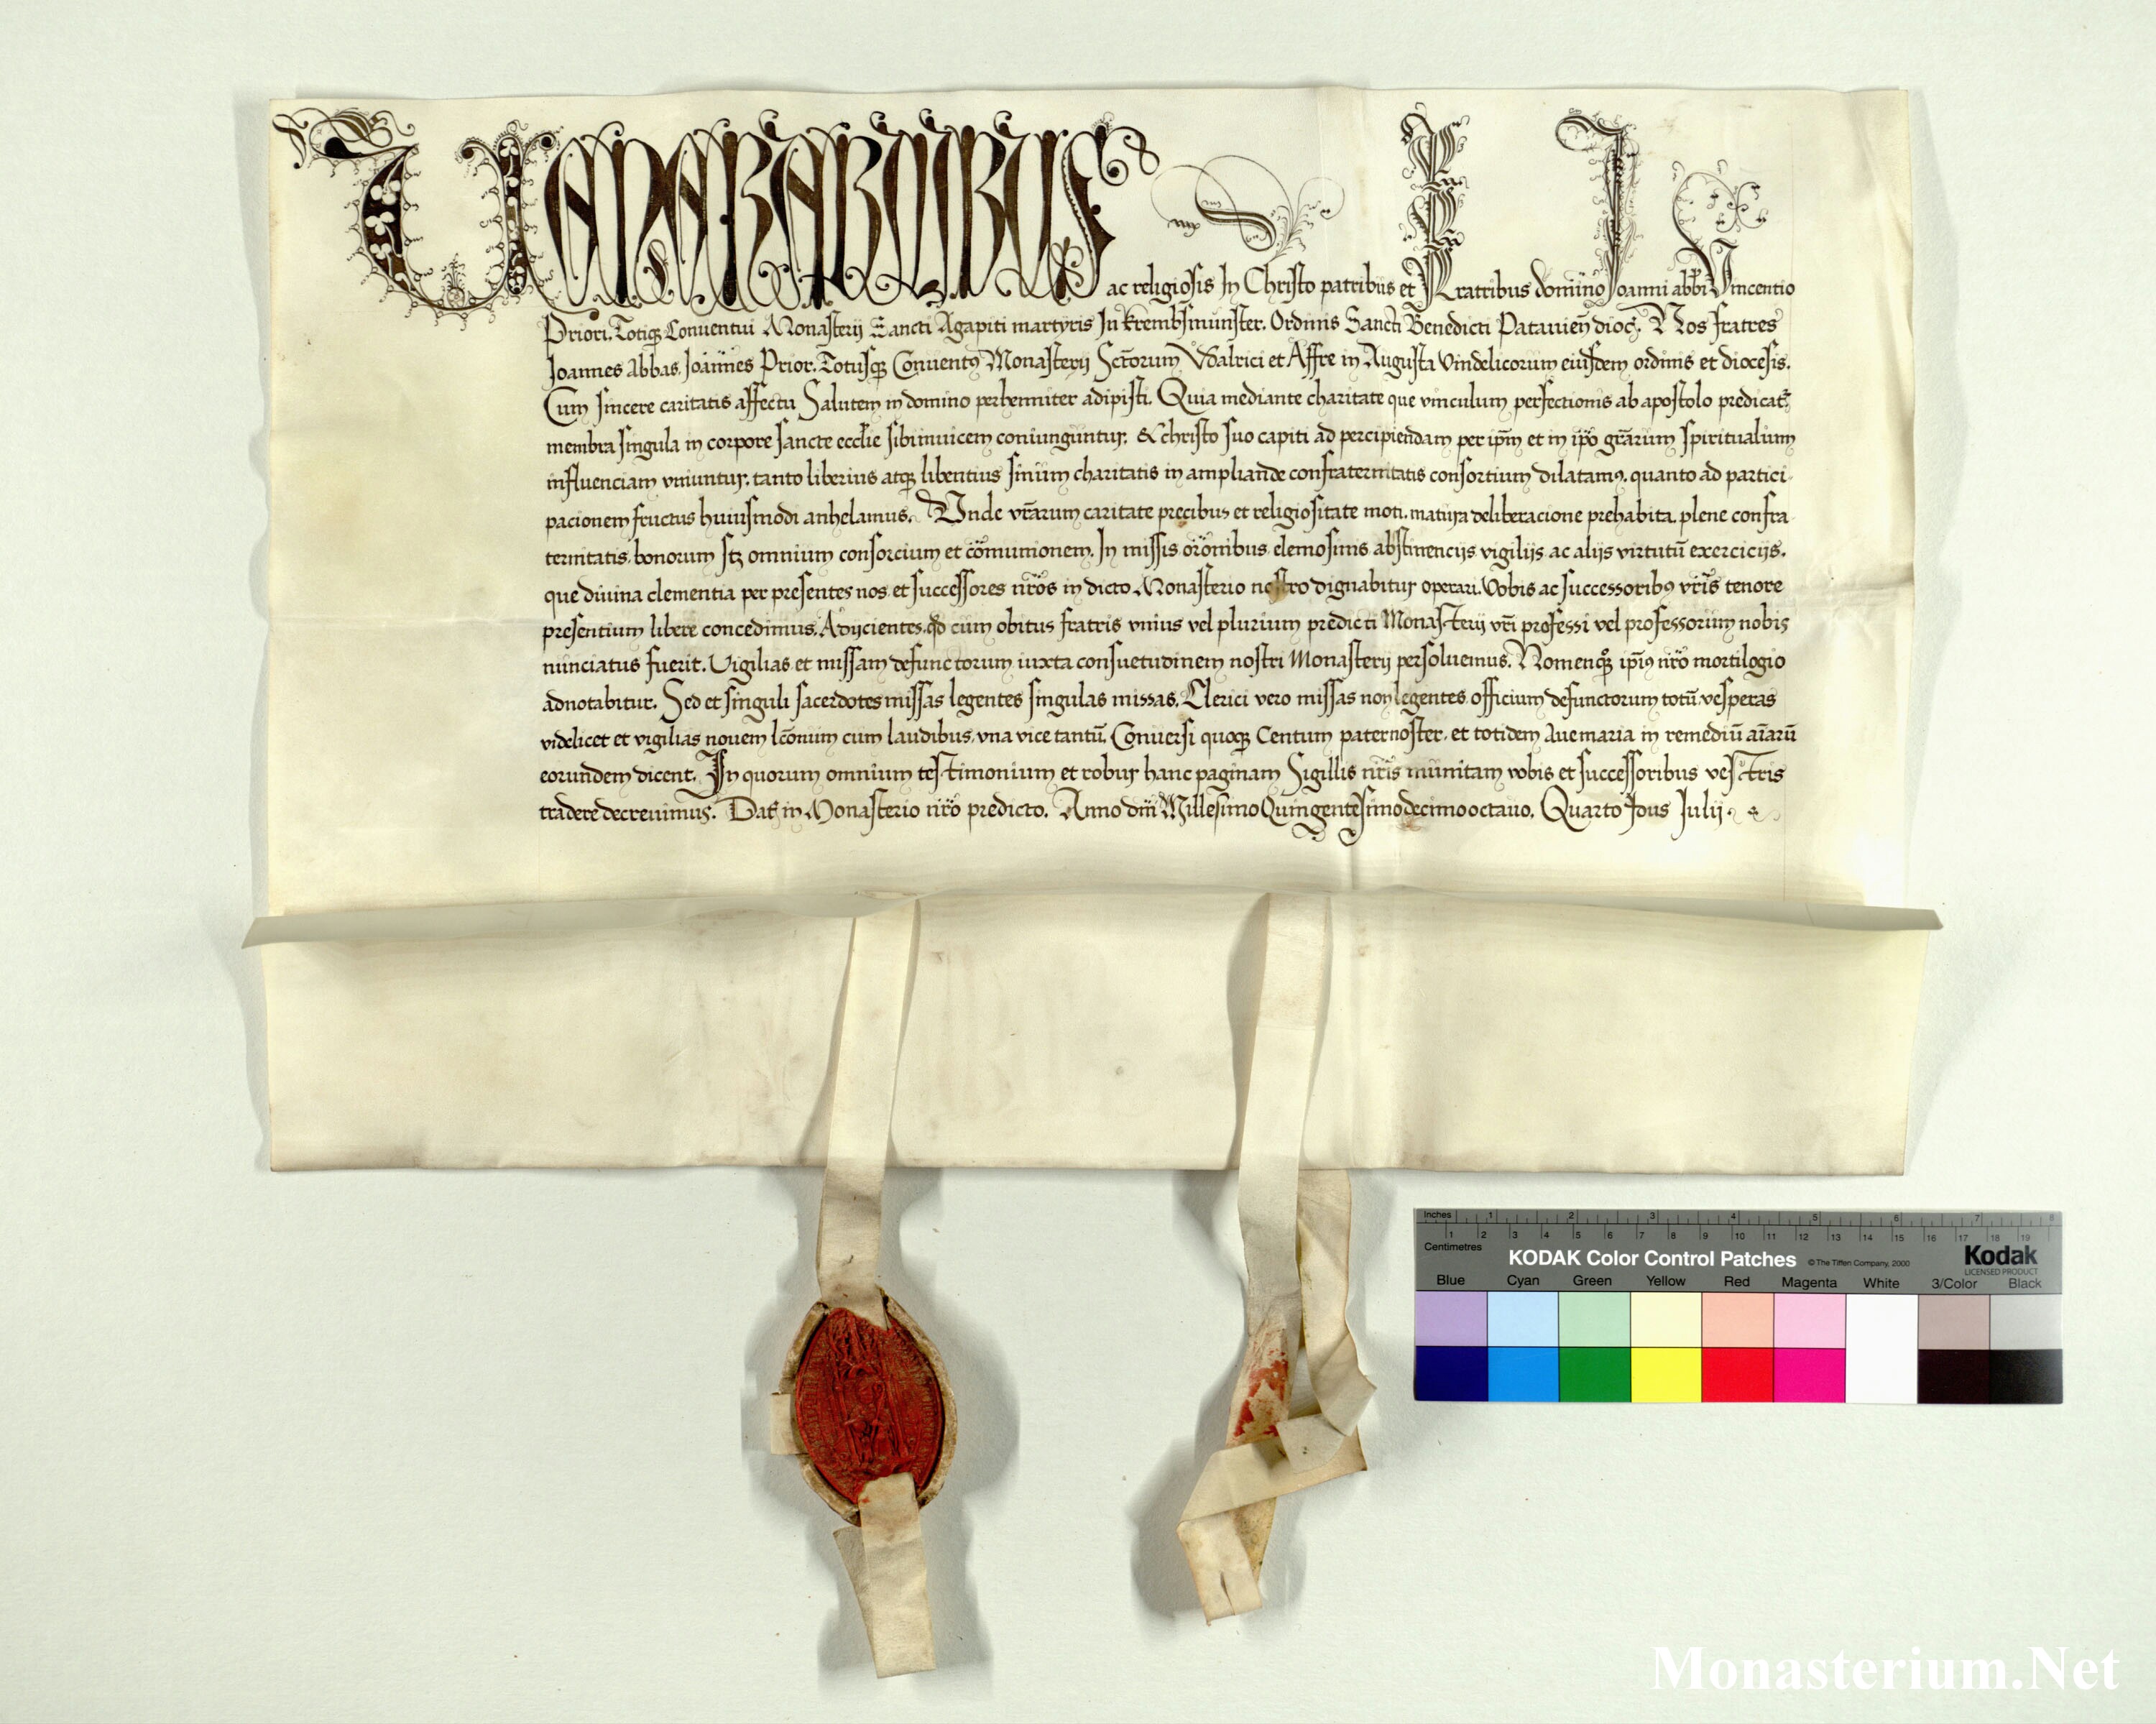 VENERABILIBUS ac religiosis In Christo patribus et Fratribus domino Joanni abbi Vincentio
Priori. Totiqꝫ Conuentui Monasterij Sancti Agapiti martyris In krembsmunster. Ordinis Sancti Benedicti Patauieñ dioc̃. Nos fratres
Joannes Abbas. Joannes Prior. Totusqꝫ Conuentꝰ Monasterij Sctorum Vdalrici et Affre in Augusta Vindelicorum eiusdem ordinis et diocesis.
Cum sincere caritatis affectu Salutem in domino perhenniter adipisti. Quia mediante charitate que vinculum perfectionis ab apostolo predicat᷑
membra singula in corpore sancte ecclie sibiinuicem coniunguntur. & christo suo capiti ad percipiendam per ip̃m et in ip̃o gr̃arum spiritualium
influenciam vniuntur. tanto liberius atqꝫ libentius sinum charitatis in ampliande confraternitatis consortium dilatamꝰ. quanto ad partici-
pacionem fructus huiusmodi anhelamus. Vnde vr̃arum caritate precibus et religiositate moti. matura deliberacione prehabita. plene confra
ternitatis. bonorum scꝫ omnium consorcium et cõmunionem. In missis or̃onibus elemosinis abstinencijs vigilijs ac alijs virtutũ exercicijs.
que diuina clementia per presentes nos et successores nr̃os in dicto Monasterio nostro dignabitur operari. Vobis ac successoribꝰ vr̃is tenore
presentium libere concedimus. Adijcientes. qđ cum obitus fratris vnius vel plurium predicti Monasterij vr̃i professi vel professorum nobis
nunciatus fuerit. Vigilias et missam defunctorum iuxta consuetudinem nostri Monasterij persoluemus. Nomenqꝫ ip̃iꝰ nr̃o mortilogio
adnotabitur. Sed et singuli sacerdotes missas legentes singulas missas. Clerici vero missas non legentes officium defunctorum totũ. vesperas
videlicet et vigilias nouem lc̃onum cum laudibus. vna vice tantũ. Conuersi quoqꝫ Centum paternoster. et totidem Auemaria in remediũ aĩarũ
eorundem dicent. In quorum omnium testimonium et robur hanc paginam Sigillis nr̃is munitam vobis et successoribus vestris
tradere decreuimus. Dat᷑ in Monasterio nr̃o predicto. Anno dñi Millesimo Quingentesimodecimooctauo. Quarto Idus Julij.
Inches 1 2 3 4 5 6 7 8
1 2 3 4 5 6 7 8 9 10 11 12 13 14 15 16 17 18 19
Centimetres
KODAK Color Control Patches © The Tiffen Company, 2000 Kodak
LICENSED PRODUCT
Blue Cyan Green Yellow Red Magenta White 3/Color Black
Monasterium.Net